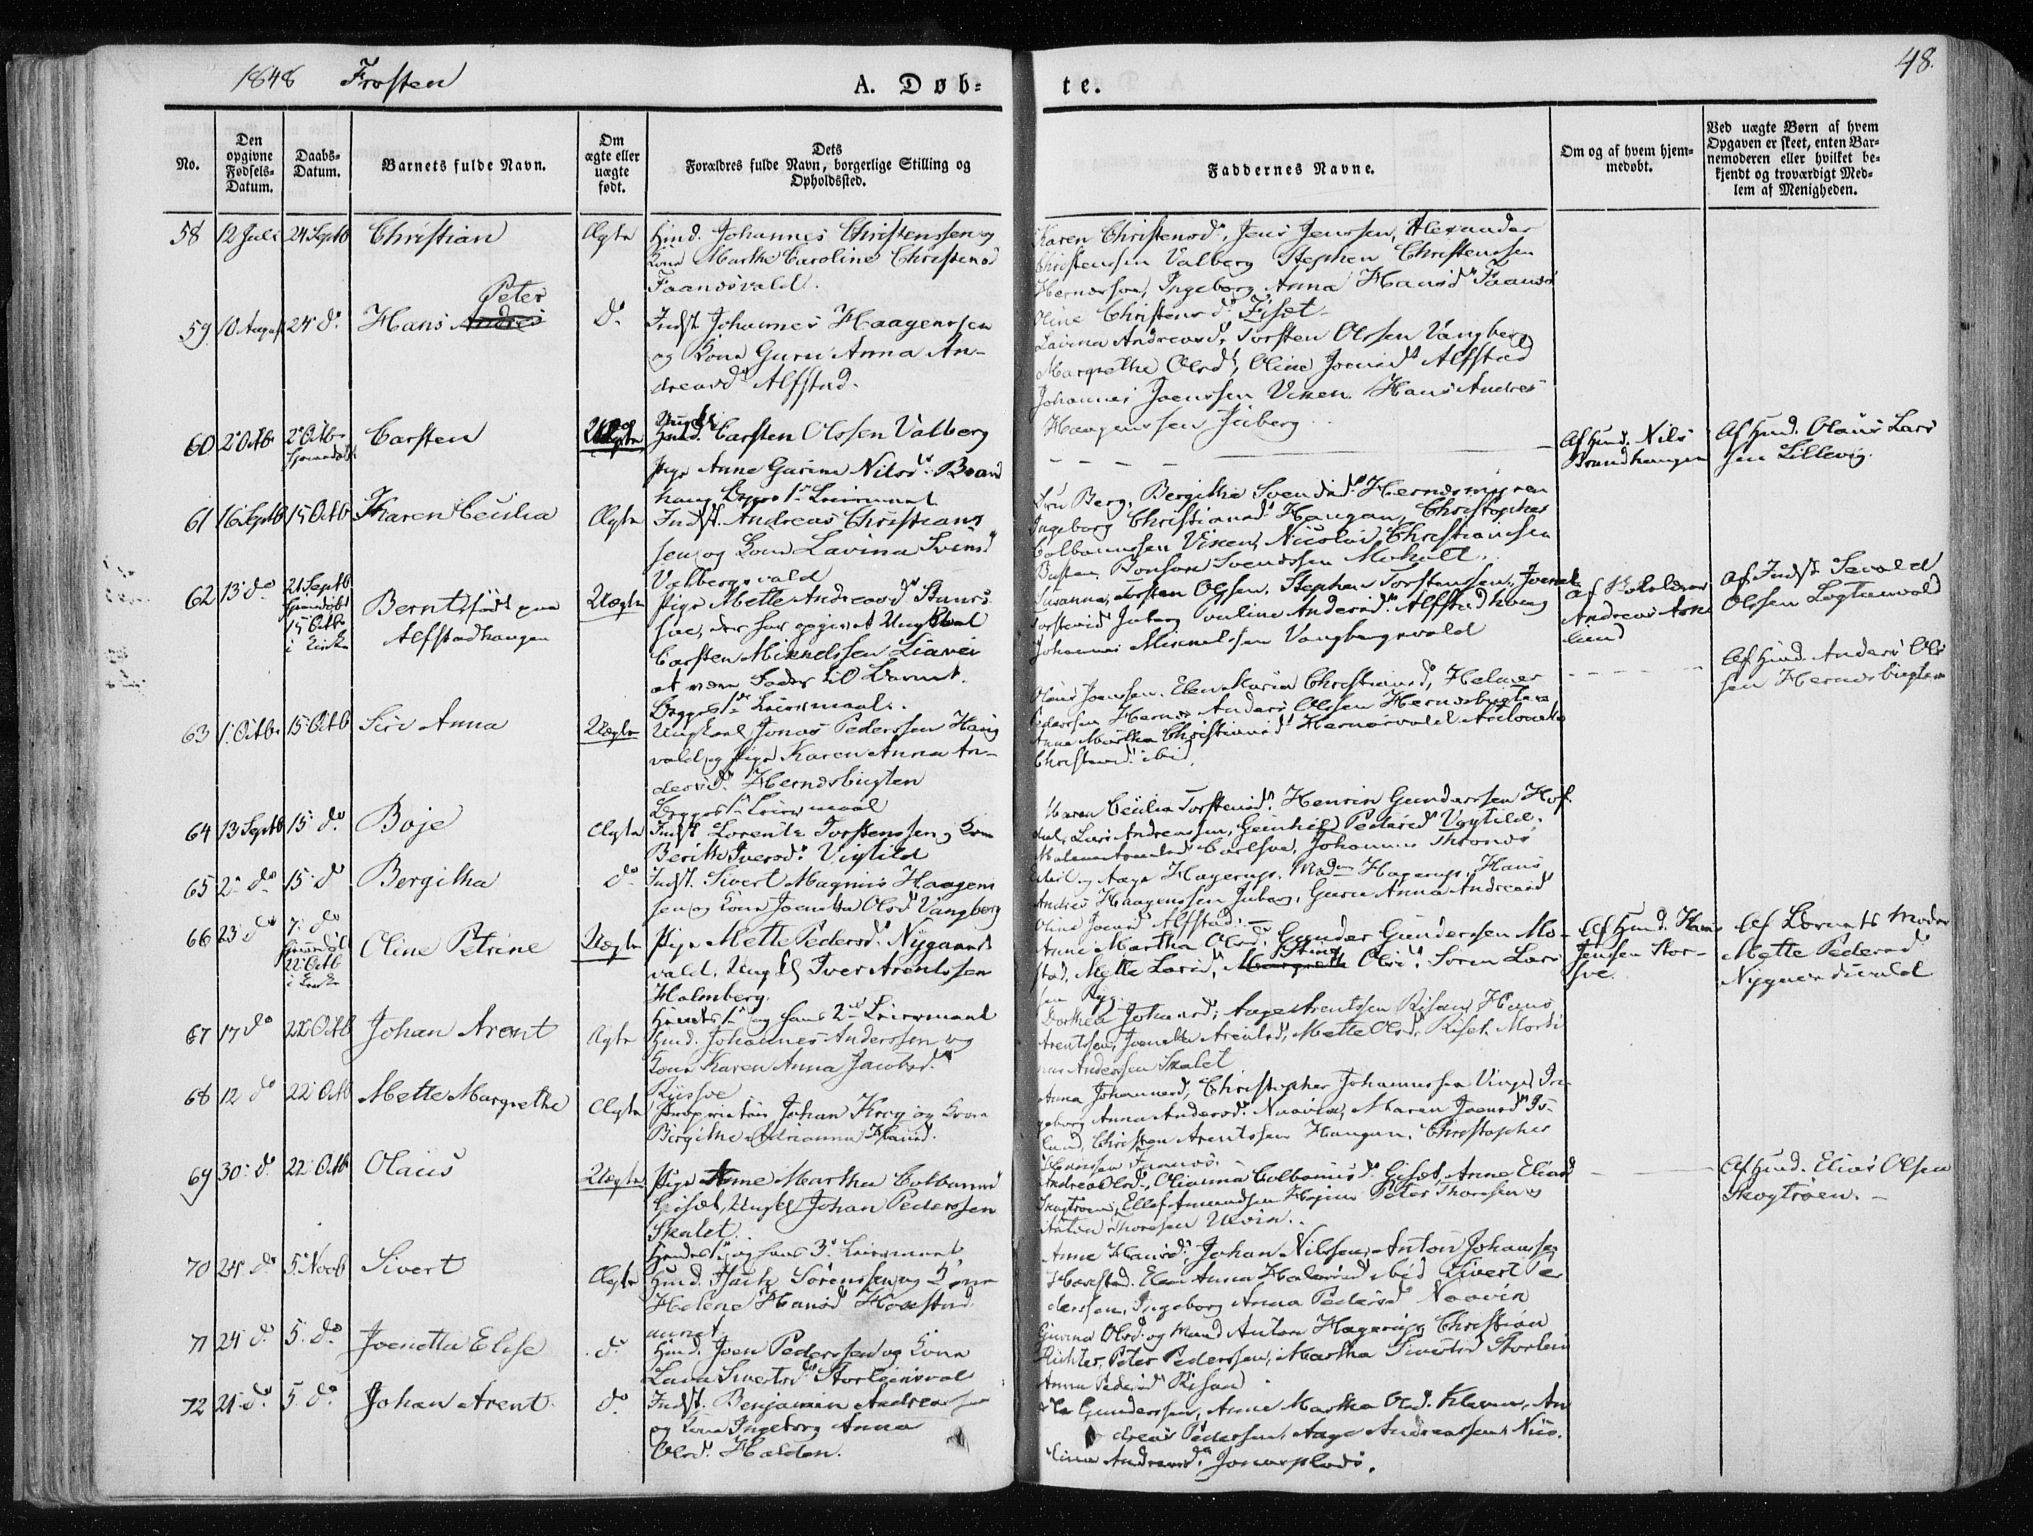 1848 Frosten
A. Døb-
te.
48.
No.
Den opgivne Fødsels-Datum.
Daabs-Datum.
Barnets fulde Navn.
Om ægte eller uægte født.
Dets Forældres fulde Navn, borgerlige Stilling og Opholdssted.
Faddernes Navne.
Om og af hvem hjem-medøbt.
Ved uægte Børn af hvem Opgaven er skeet, enten Bar-nemoderen eller hvilket be-kjendt og troværdigt Med-lem af Menigheden.
58 12 Juli 24 Septb Christian Ægte Huusd. Johannes Christenssen og
Kone Marthe Caroline Christensd
Faanesvald.
Karen Christensd., Jens Jenssen, Alexander
Christenssen Valberg Stephen Christenssen
Hernæsøen, Ingeborg Anna Hansd Faanæs
Oline Christensd.
59 10 August 24 do Hans Peter do Indst. Johannes Haagenssen
og Kone Guru Anna An-
dreasd. Alfstad.
Lavina Andreasd, Torsten Olssen Vangberg
Margrethe Olsd, Oline Joensd Alfstad
Johannes Joenssen Viken Hans Andreas
Haagenssen Juberg
60 2 Octb 2 Octb hjemmedøbt Carsten Uægte
Carsten Olssen Valberg
Pige Anne Gurine Nilsd. Brand
haug Begges 1ste Leiermaal
Af Huusd. Nils
Brandhaugen
Af Huusd. Olaus Lars
sen Lillevig.
61 16 Septb 15 Octb Karen Cecilia Ægte Indst. Andreas Christians
sen og Kone Lavina Svens
Valbergsvald
Berg, Bergithe Svendsd. Hernæsmyren
Ingeborg Christiansd Haugan, Christopher
Colbanussen Viken, Nicolai Christianssen
Svendssen Moholt
62 13 do 21 Septb hjemmedøbt 15 Octb i Kirke Bernt født paa
Alfstadhaugen
Uægte Pige Mette Andreasd.
der har opgivet Ungkarl
Carsten Mikkelssen
at være Fader til Barnet.
Begges 1ste Leiermaal.
Susanna, Torsten Olssen, Stephen Torstenssen,
Juberg Pauline Andersd Alfstadhaug
Johannes Mikkelssen Vangbergsvald
Andreas
Af Indst. Sevald
Olssen Logtunvald
63 1. Octb. 15 Octb Siri Anna Uægte Ungkarl Jonas Pederssen Haug
vald og Pige Karen Anna An-
dersd. Hernæsbugten
Begges 1ste Leiermaal
Olaus Joenssen, Elen Maria Christiansd, Helmer
Pederssen Hernes Anders Olssen Hernæsbugten
Anna Martha Christiansd Hernesvald
Christensd. ibid.
Af Huusd. Anders Ols
sen Hernæsbugten
64 13 Septb 15 do Boje Ægte Indst. Lorents Torstenssen og Kone
Berithe Iversd. Vigtild
Karen Cecilia Torstensd. Henrik Gunderssen Hof
dal, Lars Andreassen, Gunhild Pedersd Vigtild,
Johannes
65 2 do 15 do Bergitha do Indst. Sivert Magnus Haagens
sen og Kone Joenetta Olsd Vangberg
Aage Hagerup, Madm Hagerup, Hans
Andreas Haagenssen Juberg, Guru Anna Andreasd
Oline Joensd Alfstad.
66 23 do 7 do hjemmedøbt 22 Octb i Kirke Oline Petrine Uægte Pige Mette Pedersd. Nygaards
vald, Ungk. Iver Arentssen
Holmberg.
Hendes 1ste og hans 2det Leiermaal
Anne Martha Olsd. Gunder Gunderssen Mo-
stad, Mette Larsd, Stine Olsd. Søren Lars
sen
Af Huusd. Hans
Jenssen Stor-
sve.
Af Barnets Moder
Mette Pedersd
Nygaardsvald
67 17 do 22 Octb Johan Arent Ægte Huusd. Johannes Anderssen og
Kone Karen Anna Jacobsd.
Dorthea Johansd; Aage Arentssen Risan, Hans
Arentssen, Joenetta Arentsd, Mette Olsd. Riset,
Anderssen Skalet
68 12 do 22 Octb Mette Margrethe Ægte Proprietair Johan Krog og Kone
Birgithe Adrianna Hansd.
Anna Johannesd, Christopher Johannessen Vinge, In-
geborg Anna Andersd. Naavin, Maren Joensd
Christen Arentssen Haugan. Christopher
69 30 do 22 Octb Olaus Uægte Pige Anne Martha Colbanusd
Ungk. Johan Pederssen
Skalet.
Hendes 1ste og hans 3. Leiermaal
Andrea Olsd, Olianna Colbanusd. Anne Eliasd
Skogtrøen, Ellef Amundsen Peter Thoresen og
Anton Thoresen Ulvin.
Af Huusd. Elias Olsen
Skogtrøen.
70 24 do 5 Novb Sivert Ægte Huusd. Isach Sørenssen og Kone
Helene Hansd Hovstad
Anne Hansd. Johan Nilssen, Anton Johanssen
Hovstad. Elen Anna ibid Sivert Pe
derssen, Ingeborg Anna Pedersd Naavin
71 24 do 5. do Joenetta Elise do Huusd. Joen Pederssen og Kone
Lava Sivertsd Storleirsvald
Gurina Olsd. og Mand Anton Hagerup, Christian
Richter, Peter Pederssen, Martha Sivertsd Storlein
Anna Pedersd Risan
72 21 do 5 do Johan Arent do Indst. Benjamin Andreassen
og Kone Ingeborg Anna
Olsd. Halden.
Gunderssen, Anne Martha Olsd. Kleven, An
dreas Pederssen, Aage Andreassen, Nico
line Andreasd. Jonasplads.